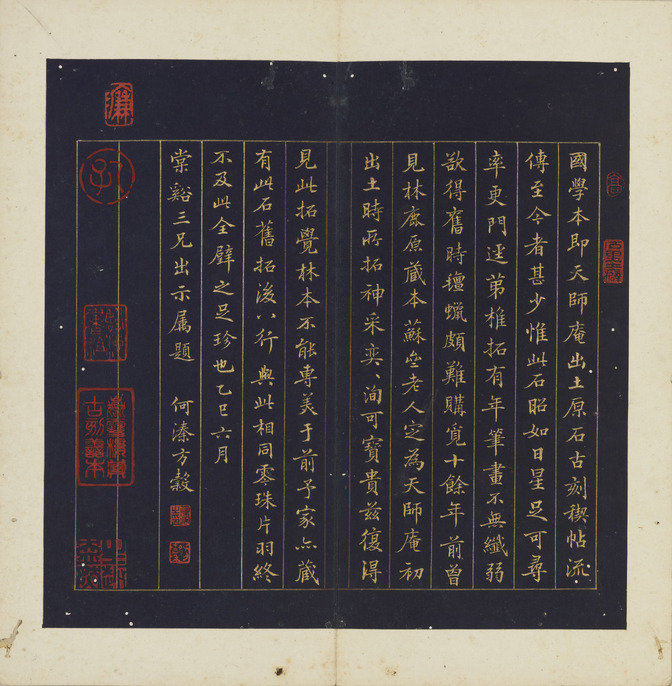 國學本即天師庵出土原石古刻禊帖流
傳至今者甚少惟此石昭如日星足可尋
率更門逕第椎拓有年筆畫不無纖弱
欲得舊時氊蠟頗難購覓十餘年前曾
見林鹿原藏本蘇齋老人定為天師庵初
出土時所拓神采奕〻洵可寶貴茲復得
見此拓覺林本不能專美于前予家亦藏
有此石舊拓後八行與此相同零珠片羽終
不及此全璧之足珍也乙巳六月
棠谿三兄出示属題 何溱方穀